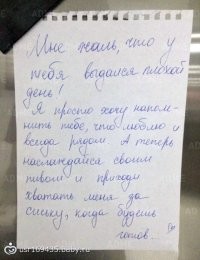 Мне жаль, что у
тебя выдался плохой
день!
Я просто хочу напом-
нить тебе, что люблю и
всегда рядом. А теперь
наслаждайся своим
пивом и приходи
хватать меня за
сиську, когда будешь
готов...
usr169435.baby.ru